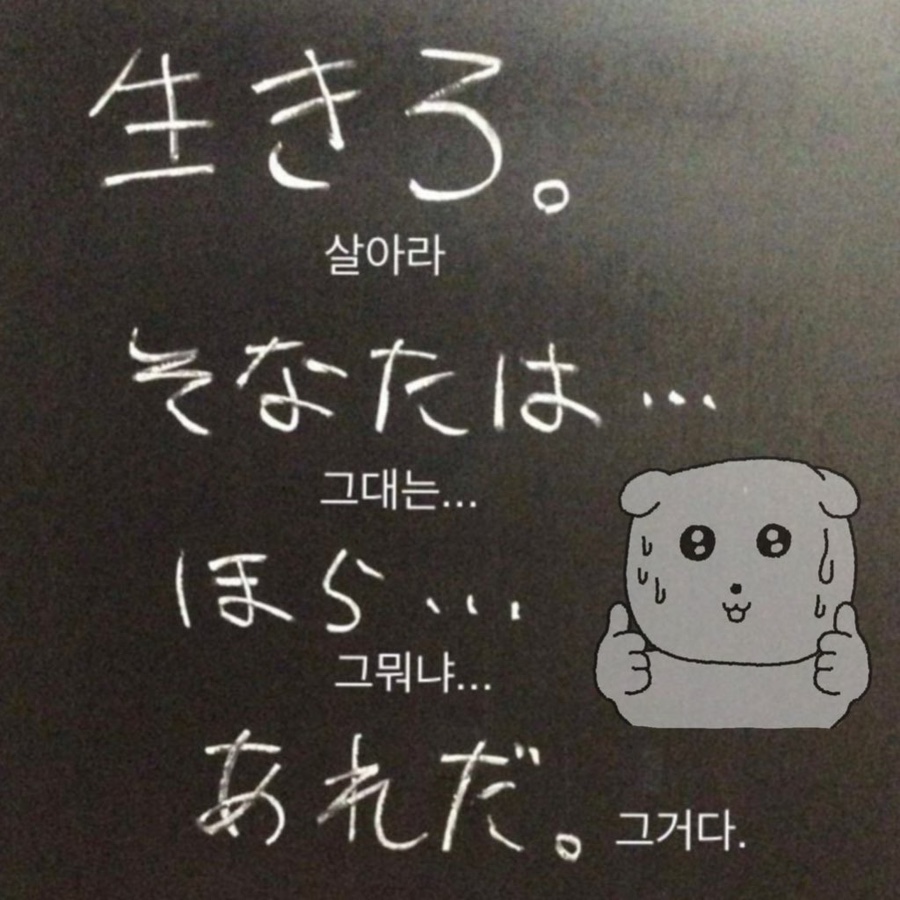 生きろ。
살아라
そなたは…
그대는...
ほら...
그뭐냐...
あれだ。 그거다.